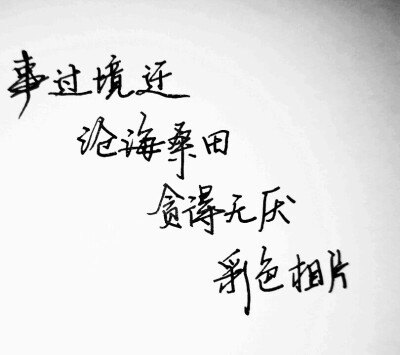 事过境迁
沧海桑田
贪得无厌
彩色相片